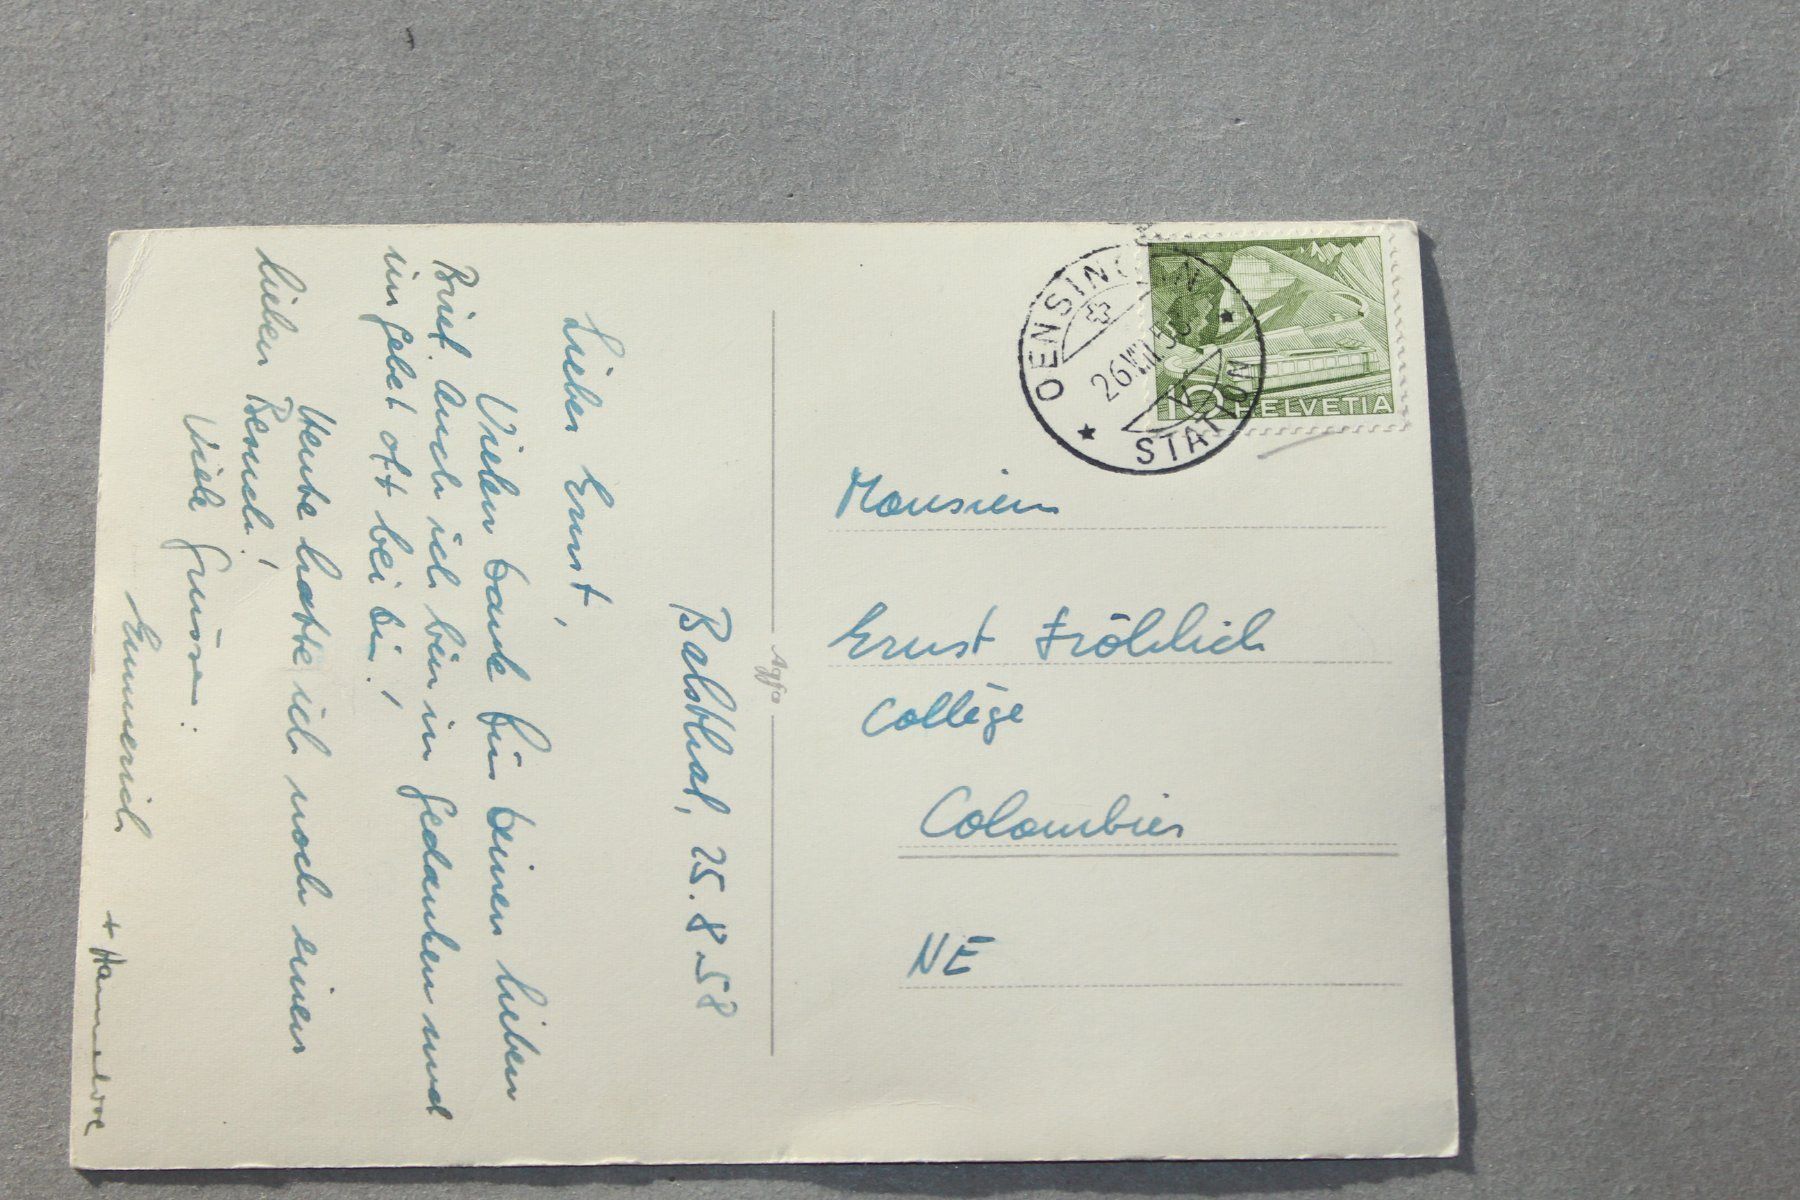 Balsthal, 25.8.58
Lieber Ernst,
Vielen Dank für deinen lieben
Brief. Auch ich bin in Gedanken und
im Gebet oft bei dir!
Heute hatte ich noch einen
lieben Besuch!
Viele Grüsse:
Emmerich
Agfa
OENSINGEN
26.VIII.58
STATION
10 HELVETIA
Monsieur
Ernst Fröhlich
Collége
Colombier
NE